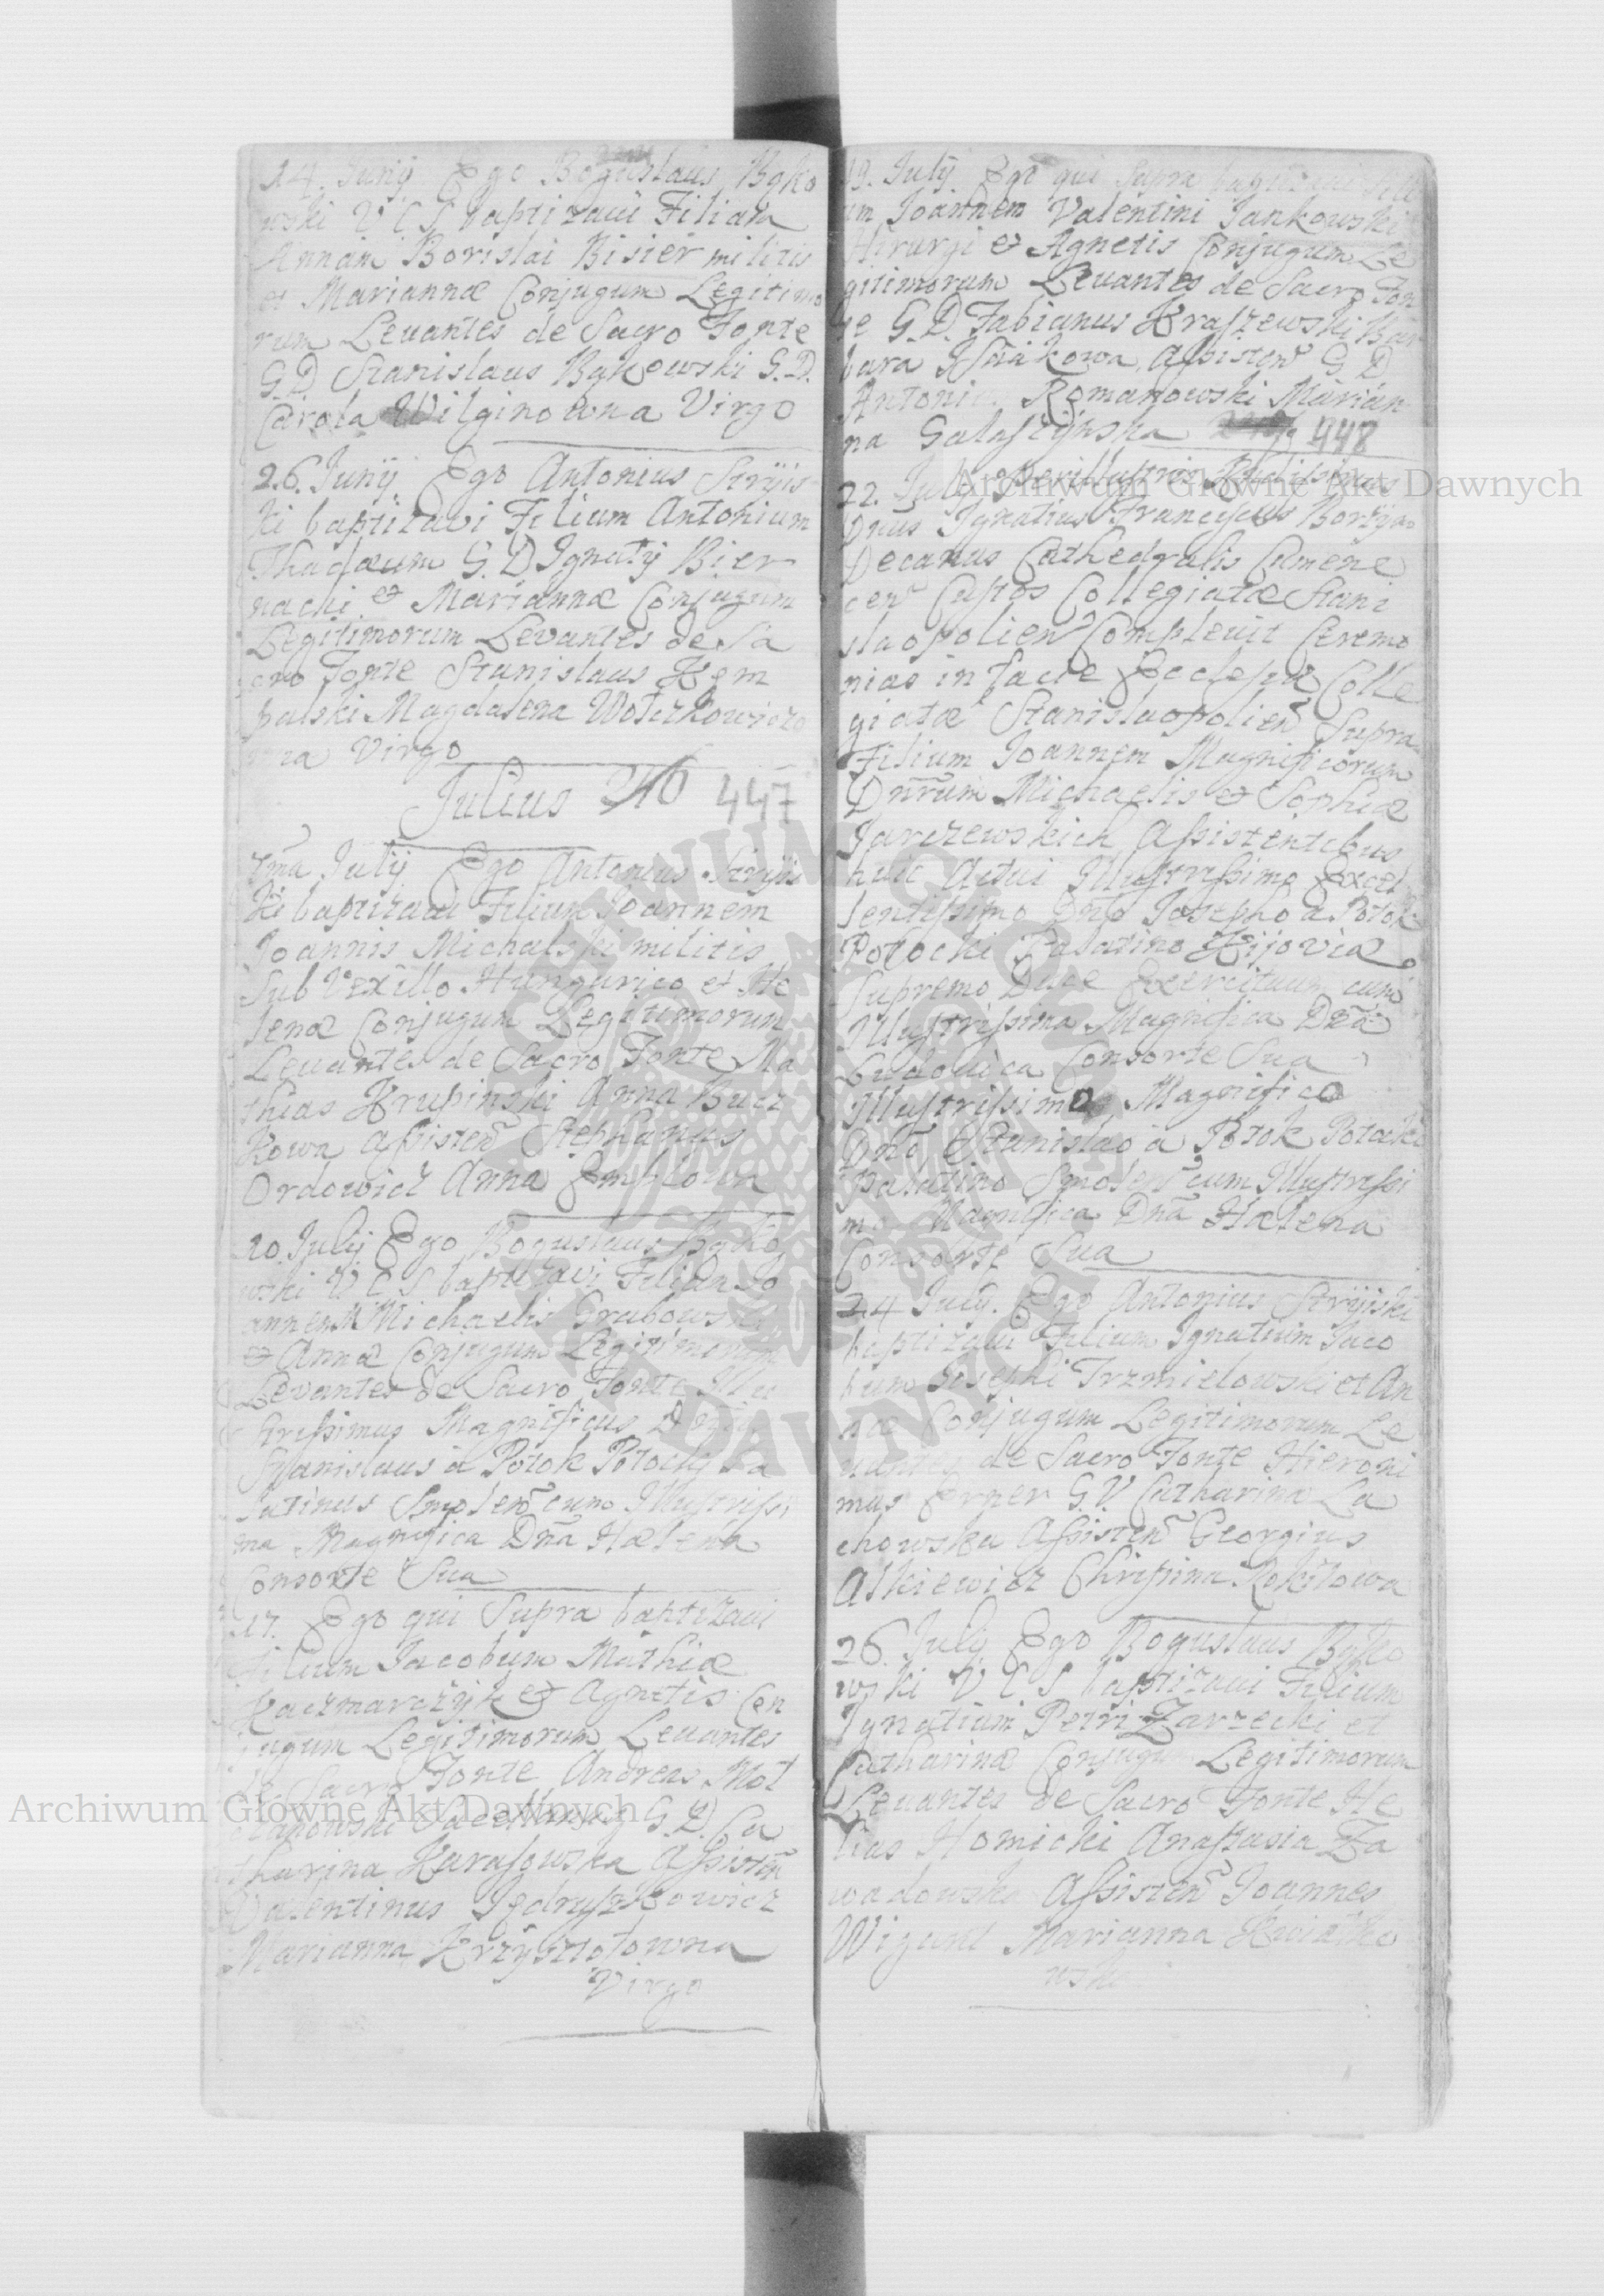 14. Junij Ego Boguslaus Byko
wski V C S baptizavi Filiam
Annam Borislai Bisier militis
et Mariannæ Conjugum Legitimo
rum Levantes de Sacro Fonte
G D Stanislaus Bykowski G. D.
Carola Wilginowna Virgo
26. Junij Ego Antonius Stryis
ki baptizavi Filium Antonium
Thadæum G. D Ignatij Bier
nacki et Mariannæ Conjugum
Legitimorum Levantes de Sa
cro Fonte Stanislaus Kem
palski Magdalena Wołczkowiczo
wna Virgo
Julius 447
1ma July Ego Antonius Stryis
ki baptizavi Filium Joannem
Joannis Michalski militis
Sub Vexillo Hungarico et He
lenæ Conjugum Legitimorum
Levantes de Sacro Fonte Ma
thias Krupinski Anna Bucz
kowa assisten Stephanus
Ordowicz Anna
10. July Ego Boguslaus Byko
wski V C S baptizavi Filium Jo
annem Michaelis Grabowski
et Annæ Conjugum Legitimorum
Levantes de Sacro Fonte Illu
strissimus Magnificus
Stanislaus à Potok Potocky Pa
latinus Smolen cum Illustrissi
ma Magnifica Dna Hælena
Consorte Sua
17. Ego qui Supra baptizavi
Filium Jacobum Mathiæ
Kaczmarczyk et Agnetis Con
jugum Legitimorum Levantes
de Sacro Fonte Andreas
G. D. Ca
tharina Karasowska Assisten
Valentinus Jędryszkowicz
Marianna Krzysztofowna
Virgo
19. July Ego qui Supra baptizavi Fili
um Joannem Valentini Jankowski
Hirurgi et Agnetis Conjugum Le
gitimorum Levantes de Sacro Fon
te G. D. Fabianus Kraszewski Bar
bara assisten G D
Antonius Romanowski Marian
na 448
22. July Perillustris Rndissimus
Dnus Ignatius Franciscus
Decanus Cathedralis Camene
cen Custos Collegiatæ Stani
slaopolien Complevit Ceremo
nias in facie Ecclesiæ Colle
giatæ Stanislaopolien Supra
Filium Joannem Magnificorum
Dnrum Michaelis et Sophiæ
Jarczewskich Assistentibus
huic Actui Illustrissimo Excel
lentissimo Dno Josepho à Potok
Potocki Palatino Kijoviæ
Supremo Duce Exercituum cum
Illustrissima Magnifica Dna
Ludovica Consorte Sua
Illustrissimo Magnifico
Dno Stanislao à Potok Potocki
Palatino Smolen cum Illustrissi
ma Magnifica Dna Hælena
Consorte Sua
24 July. Ego Antonius Stryiski
baptizavi Filium Ignatium Jaco
bum Josephi Trzmielowski et An
næ Conjugum Legitimorum Le
vantes de Sacro Fonte Hieroni
mus Erner G. V. Catharina La
chowska Assisten Georgius
Askiewicz Christina Kokitowa
26. July Ego Boguslaus Byko
wski V C S baptizavi Filium
Ignatium Petri Zarzecki et
Catharinæ Conjugum Legitimorum
Levantes de Sacro Fonte He
lias Homicki Anastasia Za
wadowska Assisten Joannes
Wigant Marianna Kwiatko
wska
Archiwum Główne Akt Dawnych
Archiwum Główne Akt Dawnych
ARCHIWUM GŁÓWNE AKT DAWNYCH